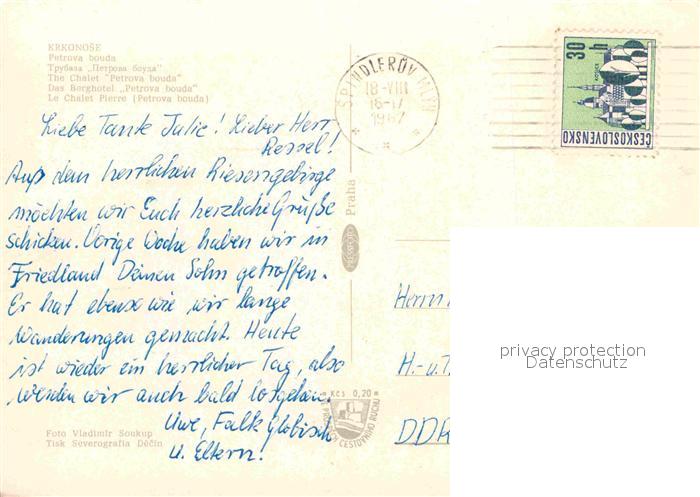 KRKONOŠE
Petrova bouda
Трубаза „Петрова боуда"
The Chalet "Petrova bouda"
Das Berghotel „Petrova bouda"
Le Chalet Pierre (Petrova bouda)
Liebe Tante Julie! Lieber Herr
Ressel!
Aus dem herrlichen Riesengebirge
möchten wir Euch herzliche Grüße
schicken. Vorige Woche haben wir in
Friedland Deinen Sohn getroffen.
Er hat ebenso wie wir lange
Wanderungen gemacht. Heute
ist wieder ein herrlicher Tag, also
werden wir auch bald losgehen.
Uwe, Falk Globisch
u. Eltern!
Foto Vladimír Soukup
Tisk Severografia Děčín
Kčs 0,20
CESTOVNÍHO RUCHU
PRESSFOTO Praha
ŠPINDLERŮV MLÝN
18-VIII
16-17
1967
30 h
KOŠICE
ČESKOSLOVENSKO
Herrn
H.- u.
DDR
privacy protection
Datenschutz